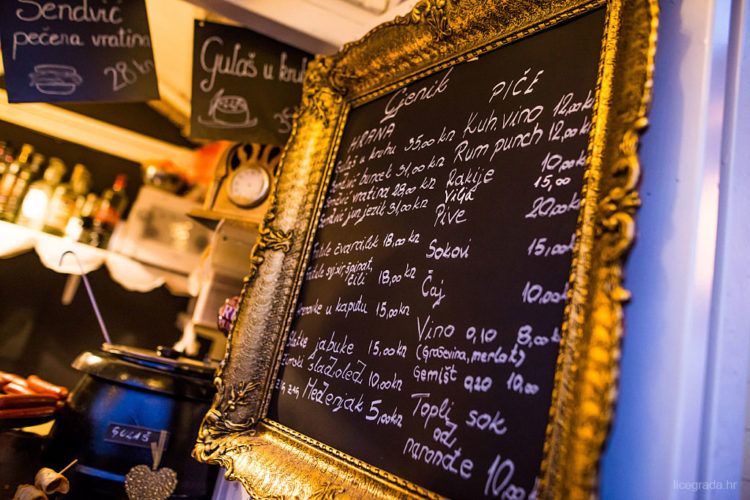 Sendvič
pečena vratina
28 kn
Gulaš u
Cjenik
HRANA
u kruhu 35,00 kn
buncek 31,00 kn
vratina 28,00 kn
jezik 31,00 kn
čvaraifek 18,00 kn
špinat,
čili 18,00 kn
u kaputu 15,00 kn
jabuke 15,00 kn
sladoled 10,00 kn
Medenjak 5,00 kn
PIĆE
Kuh. vino 12,00 kn
Rum punch 12,00 kn
Rakije 10,00 kn
Vilja 15,00
Pive 20,00 kn
Sokovi 15,00 kn
Čaj 10,00 kn
Vino 0,10 8,00 kn
(Graševina, merlot)
Gemišt 0,20 10,00
Topli sok
od
naranče 10,00
GULAŠ
licegrada.hr